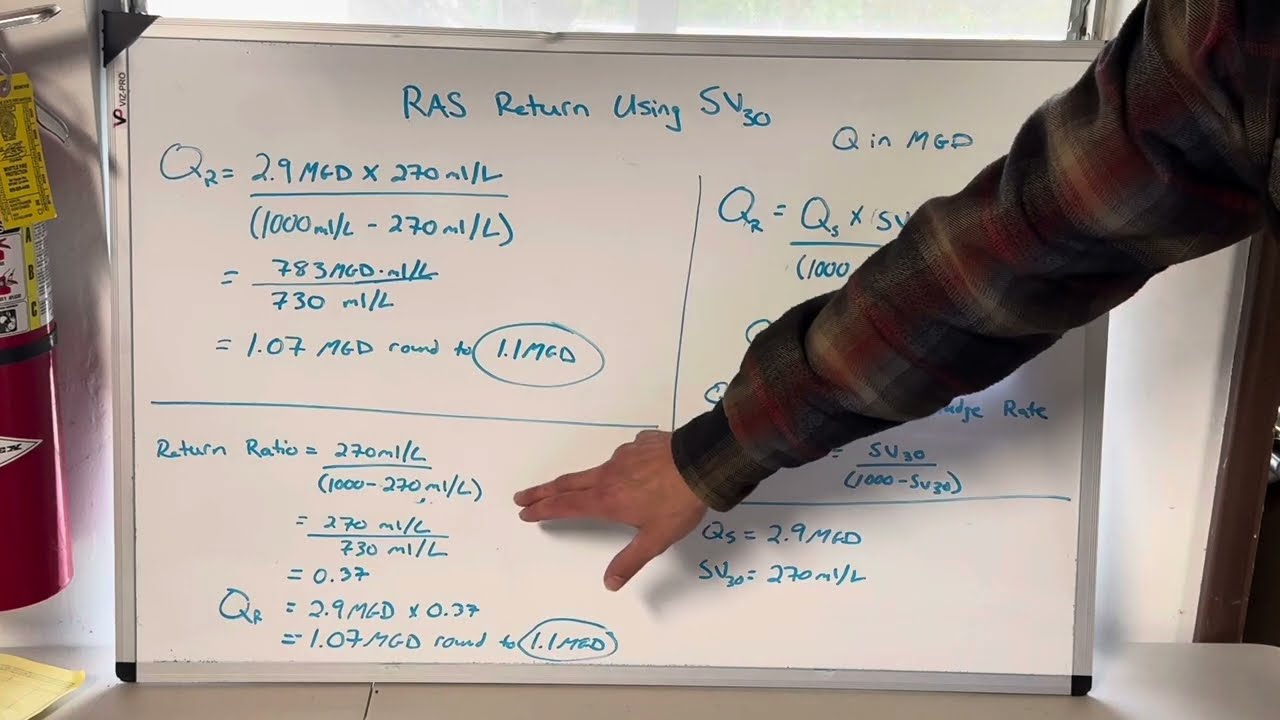 RAS Return Using SV30
Q in MGD
QR = 2.9 MGD x 270 ml/L
(1000 ml/L - 270 ml/L)
= 783 MGD·ml/L
730 ml/L
= 1.07 MGD round to 1.1 MGD
Return Ratio = 270 ml/L
(1000 - 270 ml/L)
= 270 ml/L
730 ml/L
= 0.37
QR = 2.9 MGD x 0.37
= 1.07 MGD round to 1.1 MGD
QR = Qs x SV
(1000
Rate
= SV30
(1000 - SV30)
Qs = 2.9 MGD
SV30 = 270 ml/L
VIZ-PRO
A
B
C